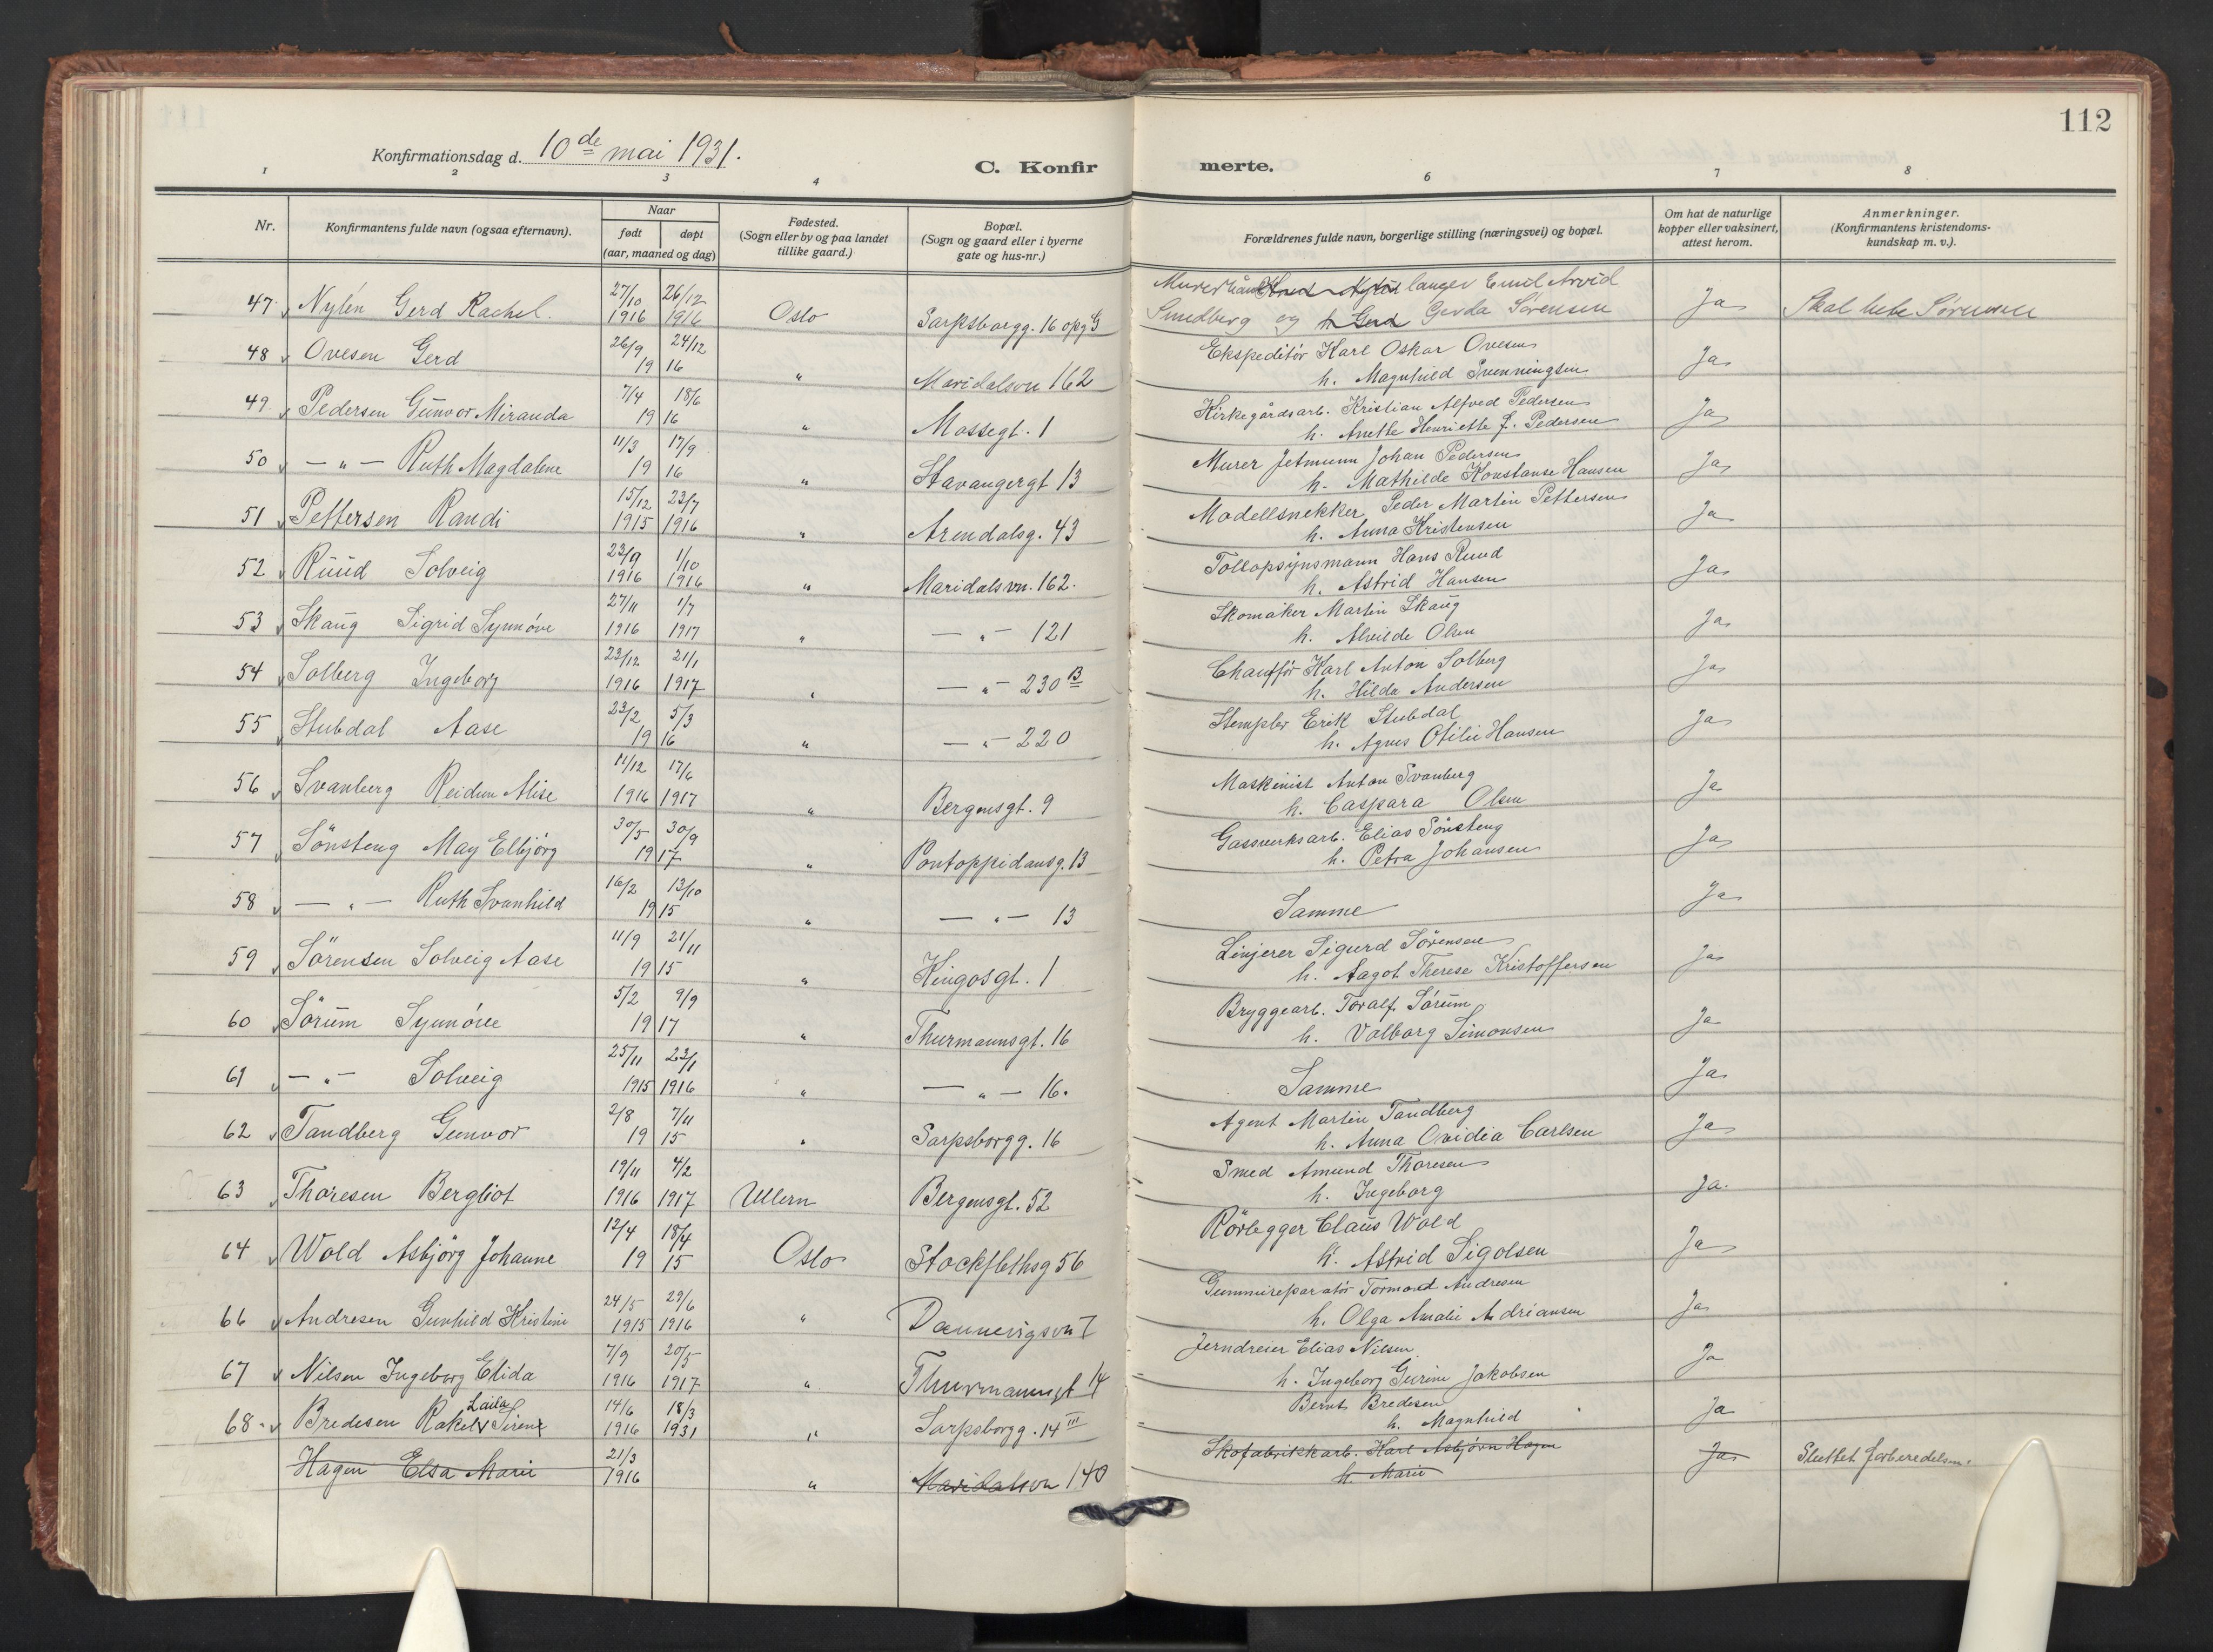 112
Konfirmationsdag d. 10de mai 1931.
C. Konfirmerte.
1 2 3 4 6 7 8
Nr.
Konfirmantens fulde navn (ogsaa efternavn).
Naar
født døpt
(aar, maaned og dag)
Fødested.
(Sogn eller by og paa landet
tillike gaard.)
Bopæl.
(Sogn og gaard eller i byerne
gate og hus-nr.)
Forældrenes fulde navn, borgerlige stilling (næringsvei) og bopæl.
Om hat de naturlige
kopper eller vaksinert,
attest herom.
Anmerkninger.
(Konfirmantens kristendoms-
kundskap m. v.).
47. Nylén Gerd Rachel. 27/10 1916 26/12 1916 Oslo Sarpsborgg. 16 opg G
langer Emil Arvid
Smedberg og Gerda Sørensen Ja Skal hete Sørensen
48 Ovesen Gerd 26/9 24/12 1916 " Maridalsvn 162
Ekspeditør Karl Oskar Ovesen
h. Magnhild Svenningsen Ja
49. Pedersen Gunvor Miranda 7/4 18/6 1916 " Mossegt. 1
Kirkegårdsarb. Kristian Alfred Pedersen
h. Anette Henriette J. Pedersen Ja
50 — " — Ruth Magdalene 11/3 17/9 1916 " Stavangergt 13
Murer Jetmunn Johan Pedersen
h. Mathilde Konstanse Hansen Ja
51 Pettersen Randi 15/12 1915 23/7 1916 " Arendalsg. 43
Modellsnekker Peder Martin Pettersen
h. Anna Kristensen Ja
52 Ruud Solveig 23/9 1916 1/10 1916 " Maridalsvn. 162.
Tollopsynsmann Hans Ruud
h. Astrid Hansen Ja
53 Skaug Sigrid Synnøve 27/11 1916 1/7 1917 " — " — 121
Skomaker Martin Skaug
h. Alvilde Olsen Ja
54 Solberg Ingeborg 23/12 1916 21/1 1917 " — " — 230 B
Chauffør Karl Anton Solberg
h. Hilda Andersen Ja
55 Stubdal Aase 23/2 5/3 1916 " — " — 220
Stempler Erik Stubdal
h. Agnes Otilie Hansen Ja
56 Svanberg Reidun Alise 11/12 1916 17/6 1917 " Bergensgt. 9
Maskinist Anton Svanberg
h. Caspara Olsen Ja
57 Sönsteng May Elbjørg 30/5 30/9 1917 " Pontoppidansg. 13
Gassverksarb. Elias Sönsteng
h. Petra Johansen Ja
58 — " — Ruth Svanhild 16/2 13/10 1915 " — " — 13
Samme Ja
59 Sörensen Solveig Aase 11/9 21/11 1915 " Kingosgt. 1
Linjerer Sigurd Sörensen
h. Aagot Therese Kristoffersen Ja
60 Sörum Synnöve 5/2 9/9 1917 " Thurmannsgt. 16
Bryggearb. Toralf Sörum
h. Valborg Simonsen Ja
61 — " — Solveig 25/11 1915 23/1 1916 " — " — 16.
Samme Ja
62 Tandberg Gunvor 2/8 7/11 1915 " Sarpsborgg. 16
Agent Martin Tandberg
h. Anna Ovidia Carlsen Ja
63 Thoresen Bergliot 19/11 1916 4/2 1917 Ullern Bergensgt. 52
Smed Amund Thoresen
h. Ingeborg Ja.
64 Wold Asbjörg Johanne 12/4 18/4 1915 Oslo Stockflethsg 56
Rörlegger Claus Wold
h. Astrid Sigolsen Ja
66 Andresen Gunhild Kristine 24/5 1915 29/6 1916 " Dannevigsvn 7
Gummireparatör Tormod Andresen
h. Olga Amalie Adriansen Ja
67 Nilsen Ingeborg Elida 7/9 1916 20/5 1917 " Thurmannsgt 14
Jerndreier Elias Nilsen.
h. Ingeborg Jakobsen Ja
68. Bredesen Rakel Laila 14/6 1916 18/3 1931 " Sarpsborgg. 14 III
Bernt Bredesen
h. Magnhild Ja
Hagen Elsa Marie 21/3 1916 " Maridalsvn 140
Skofabrikkarb. Karl Asbjørn Hagen
h. Marie Ja Sluttet forberedelsen.